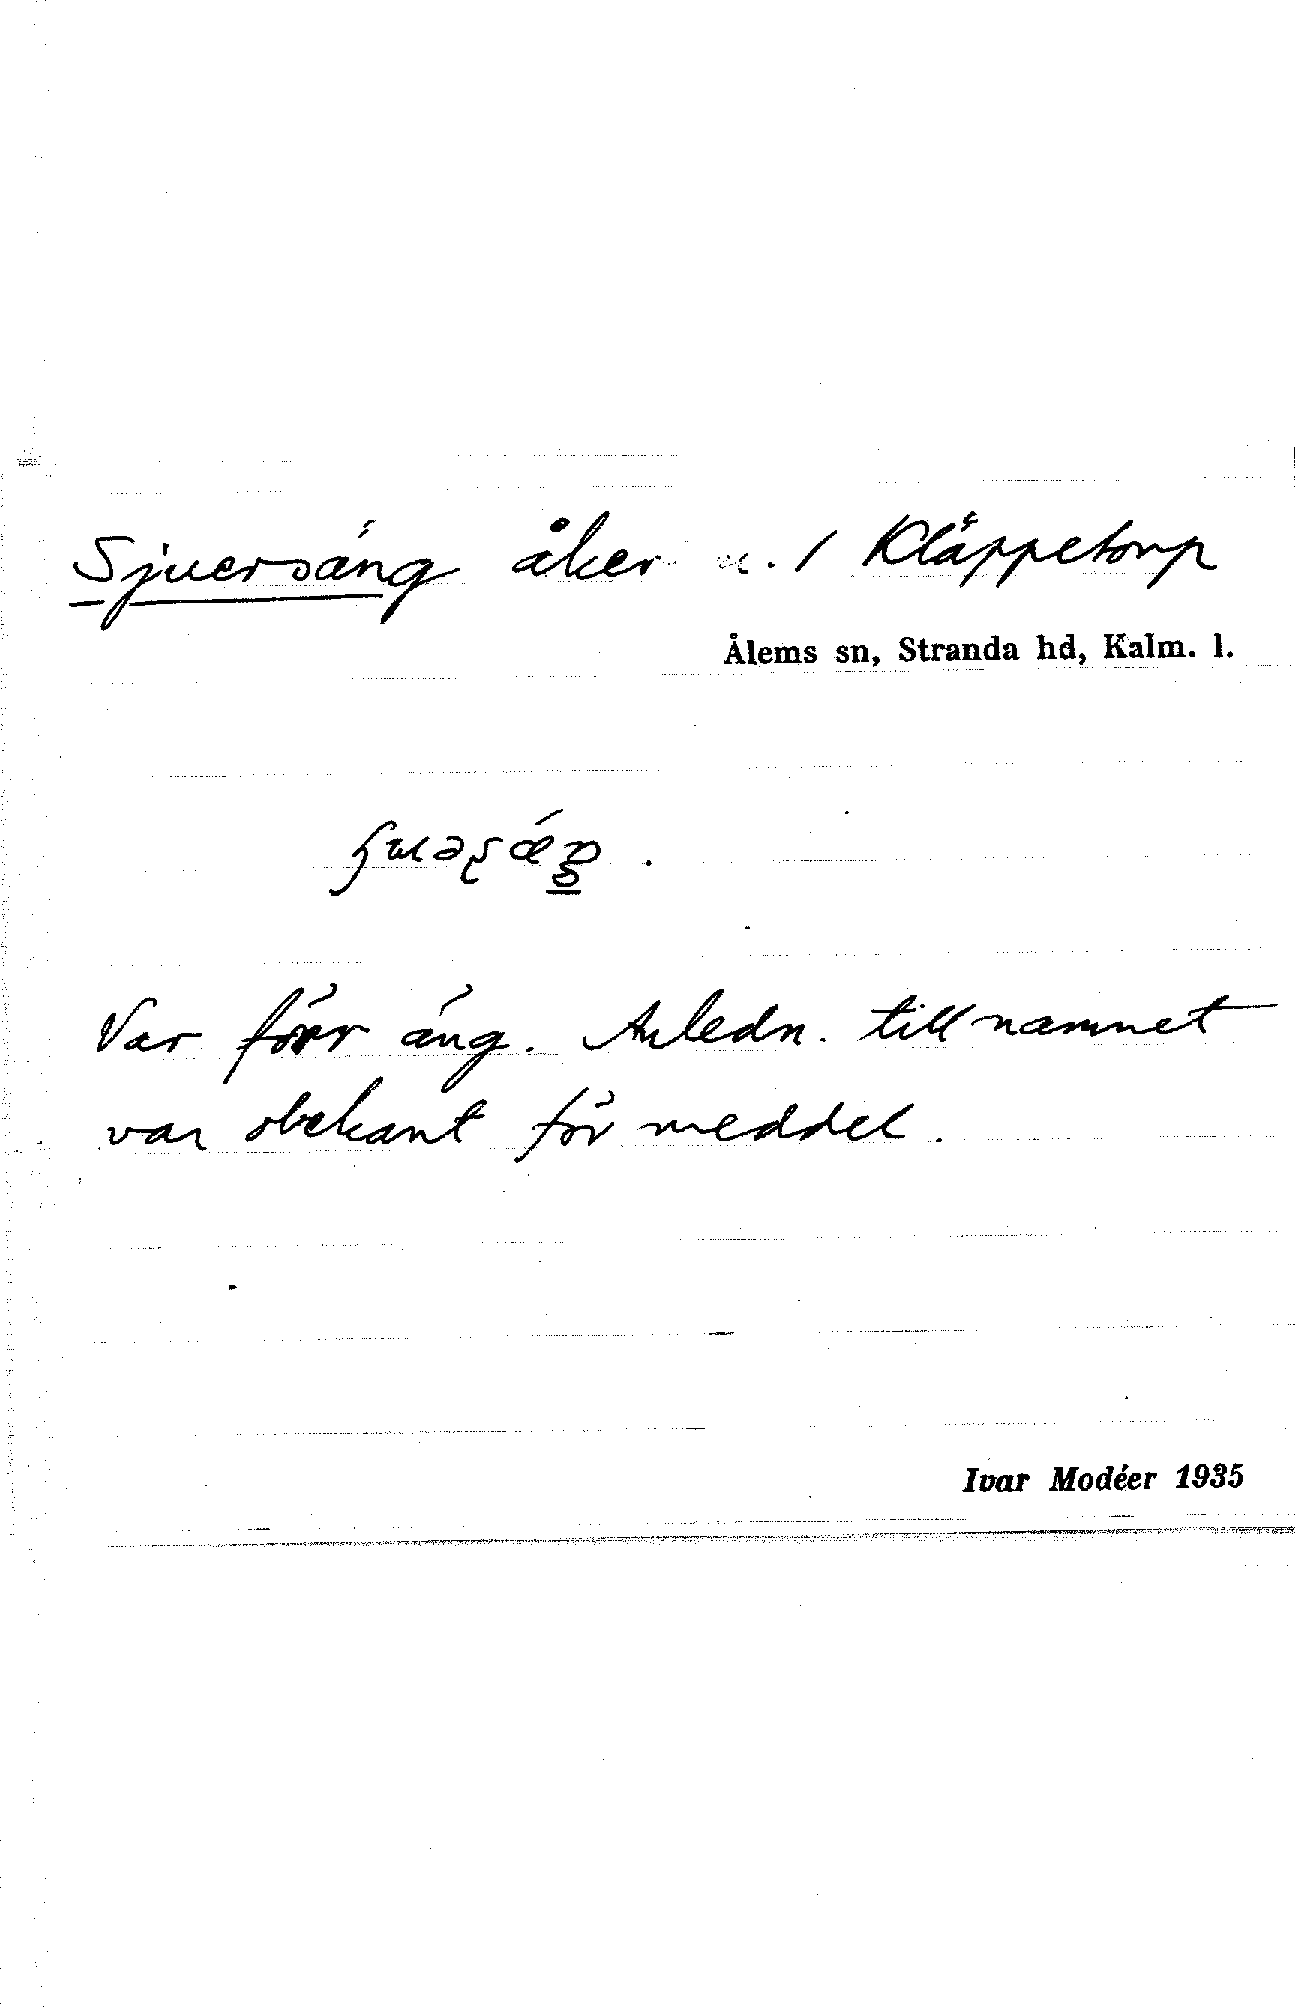 Sjuersäng åker n. / Kläppetorp
Ålems sn, Stranda hd, Kalm. l.
Var förr äng. Anledn. till namnet
var obekant för meddel.
Ivar Modéer 1935